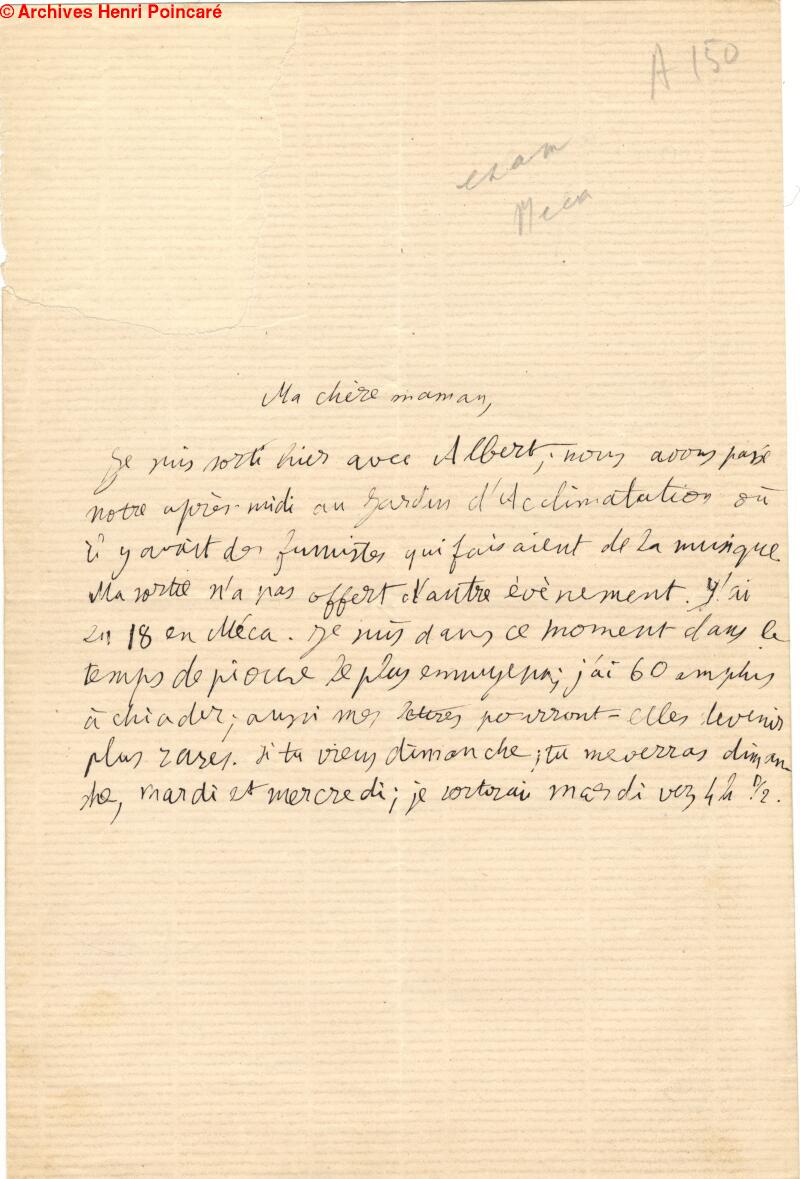 © Archives Henri Poincaré
A 150
exam
Meca
Ma chère maman,
Je suis sorti hier avec Albert; nous avons passé
notre après-midi au Jardin d'Acclimatation où
il y avait des fumistes qui faisaient de la musique
Ma sortie n'a pas offert d'autre évènement. J'ai
eu 18 en Méca. Je suis dans ce moment dans le
temps de pioche le plus ennuyeux; j'ai 60 amphis
à chiader; aussi mes lettres pourront-elles devenir
plus rares. Si tu viens dimanche; tu me verras diman-
che, mardi et mercredi; je sortirai mardi vers 4 h 1/2.